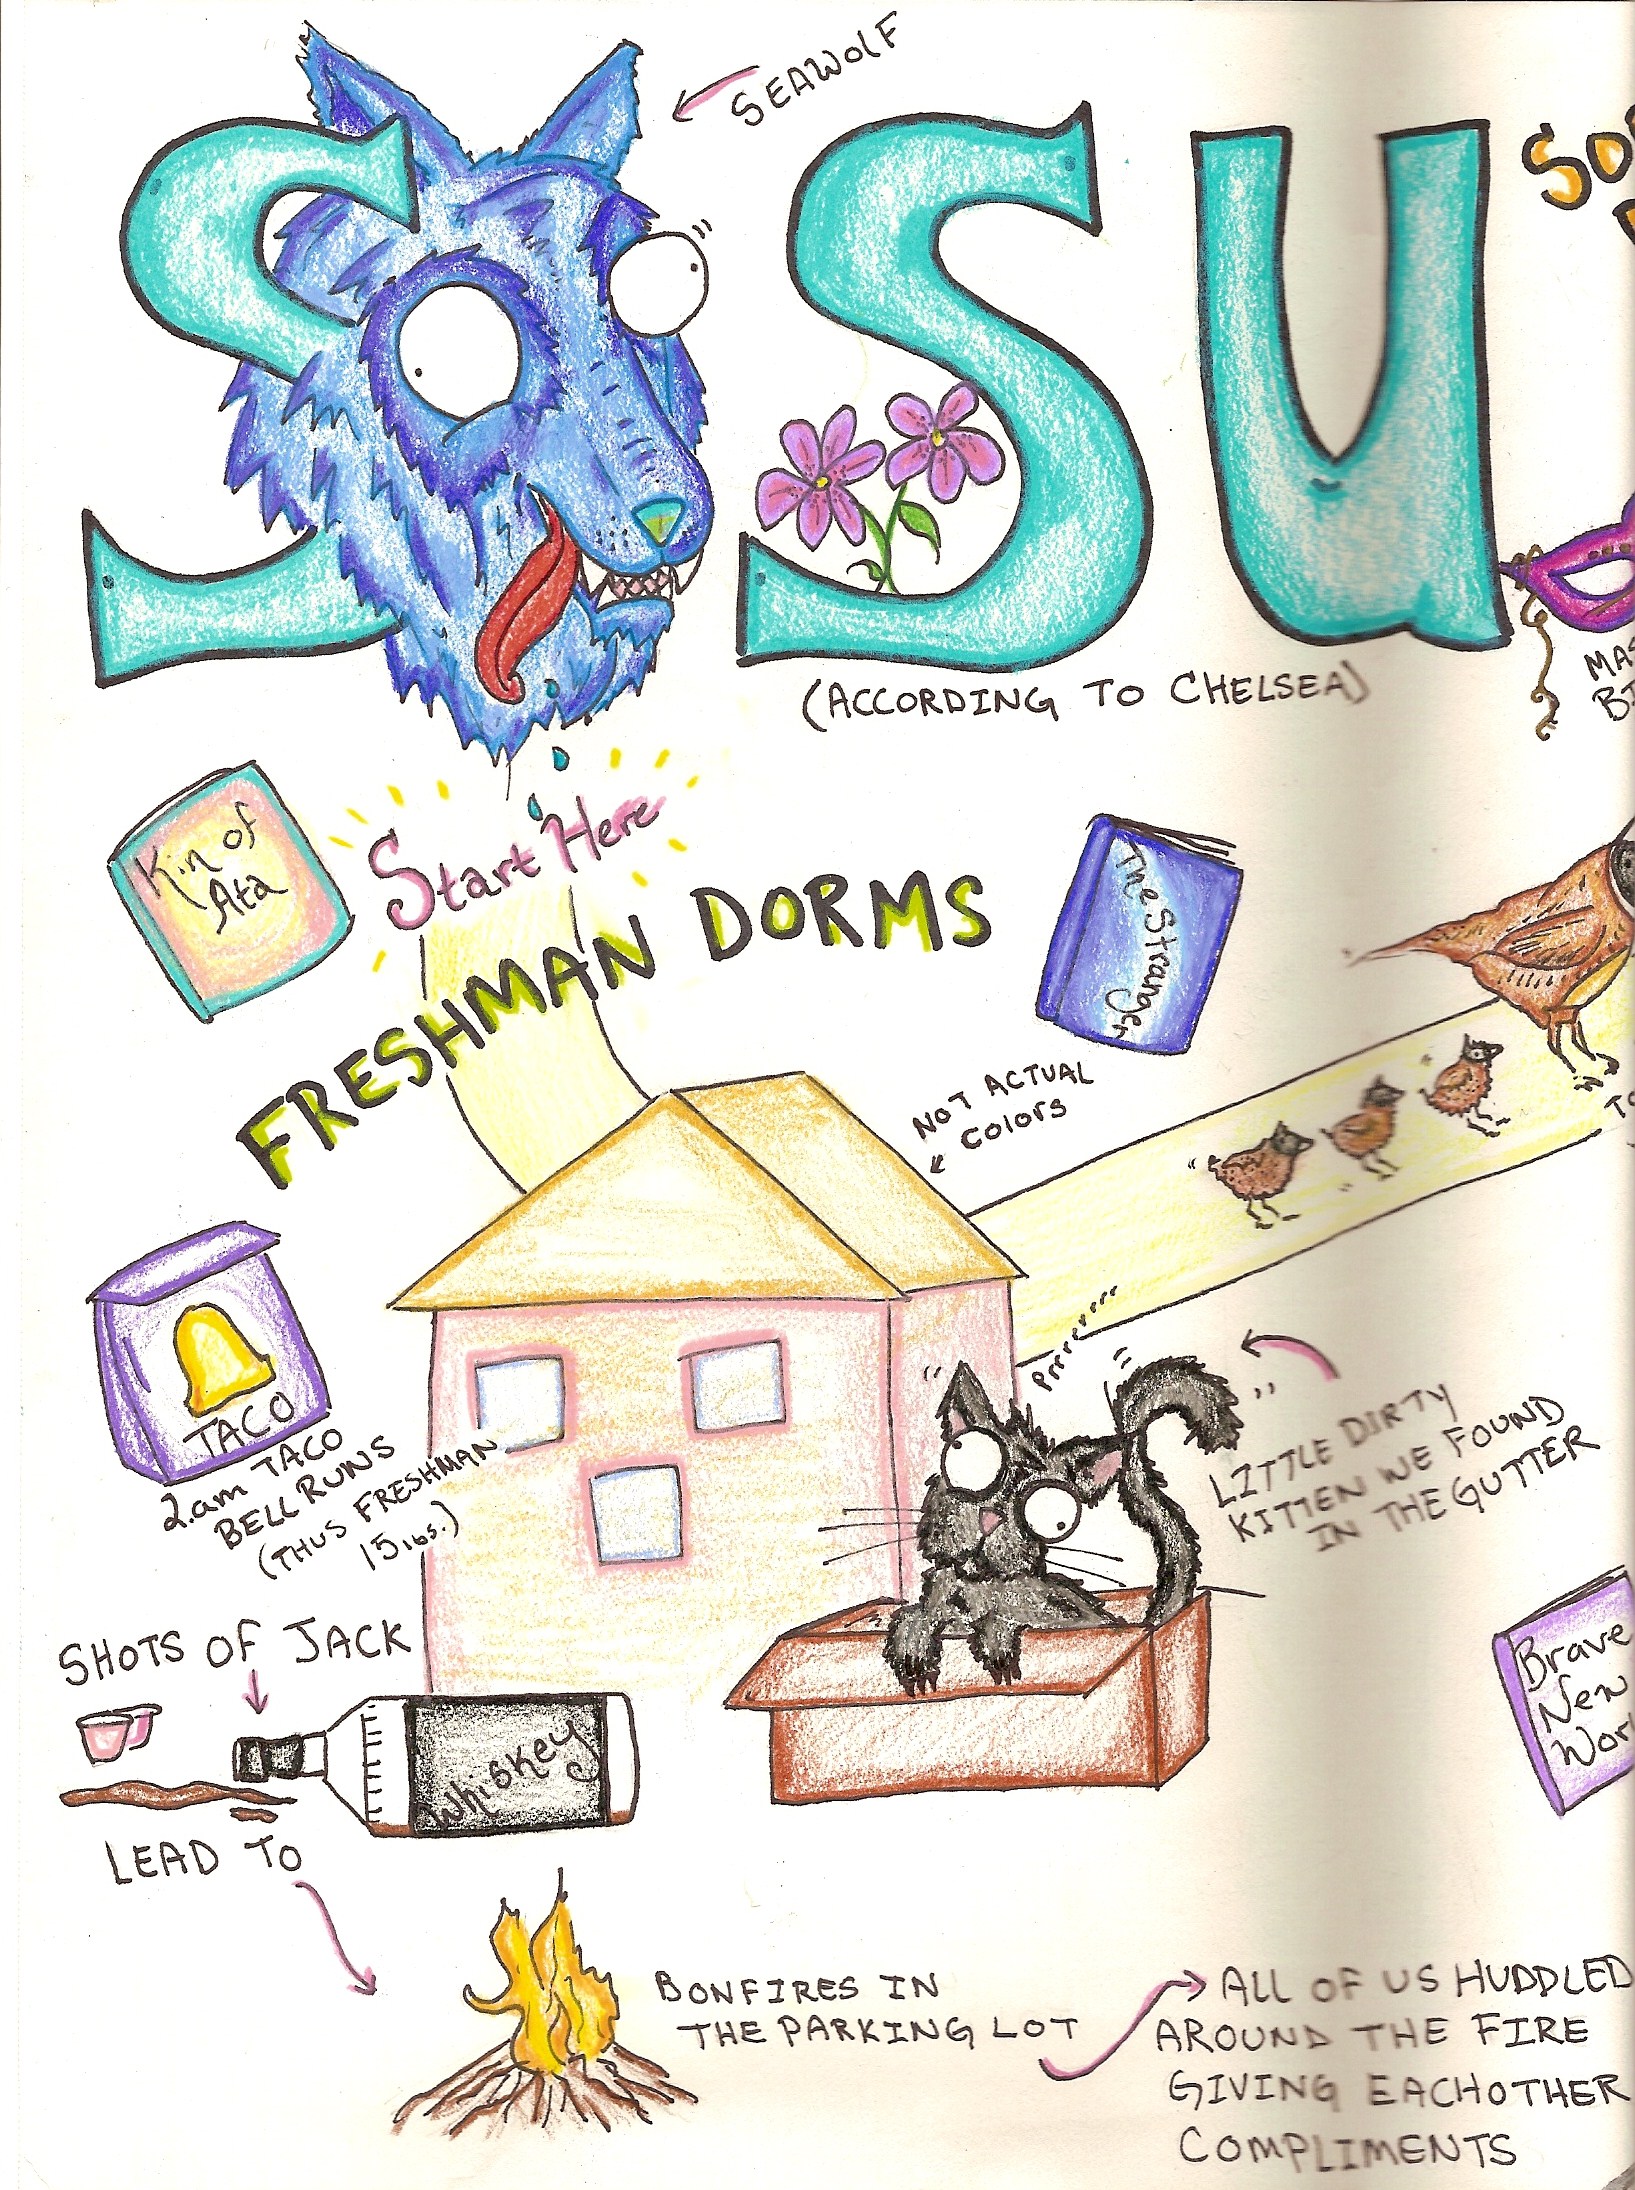 SEAWOLF
SSU
(ACCORDING TO CHELSEA)
Start Here
Kin of
Ata
FRESHMAN DORMS
The Stranger
NOT ACTUAL
COLORS
TACO
2am TACO
BELL RUNS
(THUS FRESHMAN
15 lbs.)
Prrrrrrrr
LITTLE DIRTY
KITTEN WE FOUND
IN THE GUTTER
SHOTS OF JACK
Whiskey
LEAD TO
Brave
New
BONFIRES IN
THE PARKING LOT
ALL OF US HUDDLED
AROUND THE FIRE
GIVING EACHOTHER
COMPLIMENTS